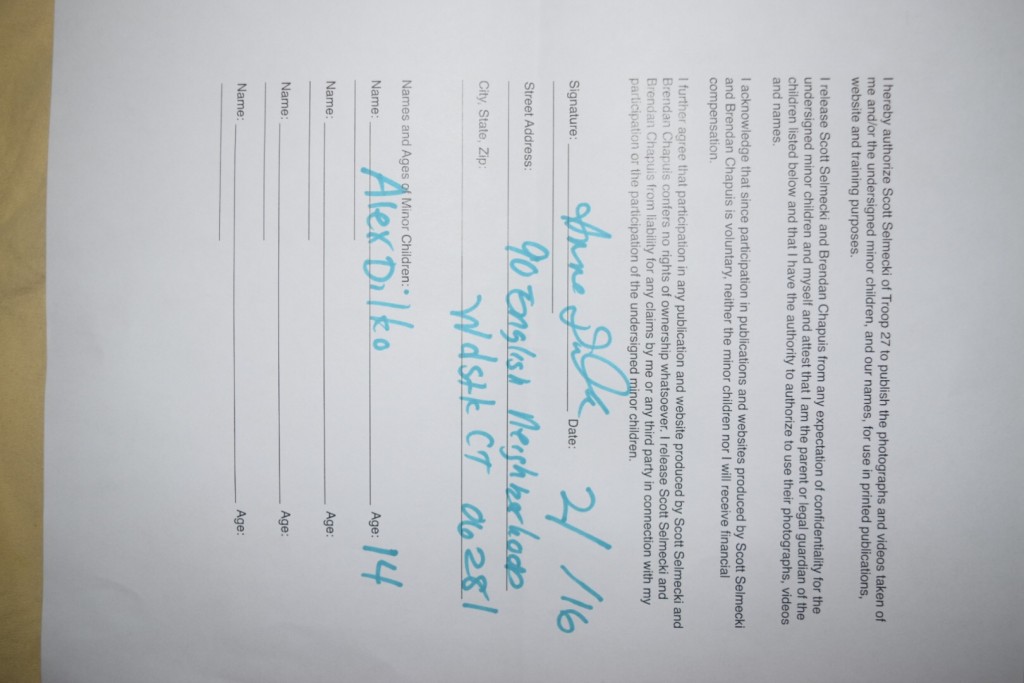 I hereby authorize Scott Selmecki of Troop 27 to publish the photographs and videos taken of
me and/or the undersigned minor children, and our names, for use in printed publications,
website and training purposes.
I release Scott Selmecki and Brendan Chapuis from any expectation of confidentiality for the
undersigned minor children and myself and attest that I am the parent or legal guardian of the
children listed below and that I have the authority to authorize to use their photographs, videos
and names.
I acknowledge that since participation in publications and websites produced by Scott Selmecki
and Brendan Chapuis is voluntary, neither the minor children nor I will receive financial
compensation.
I further agree that participation in any publication and website produced by Scott Selmecki and
Brendan Chapuis confers no rights of ownership whatsoever. I release Scott Selmecki and
Brendan Chapuis from liability for any claims by me or any third party in connection with my
participation or the participation of the undersigned minor children.
Signature: Anne Date: 2/ /16
Street Address: 90 English Neighborhood
City, State, Zip: Wdstk CT 06281
Names and Ages of Minor Children:
Name: Alex Dilko Age: 14
Name: Age:
Name: Age:
Name: Age: